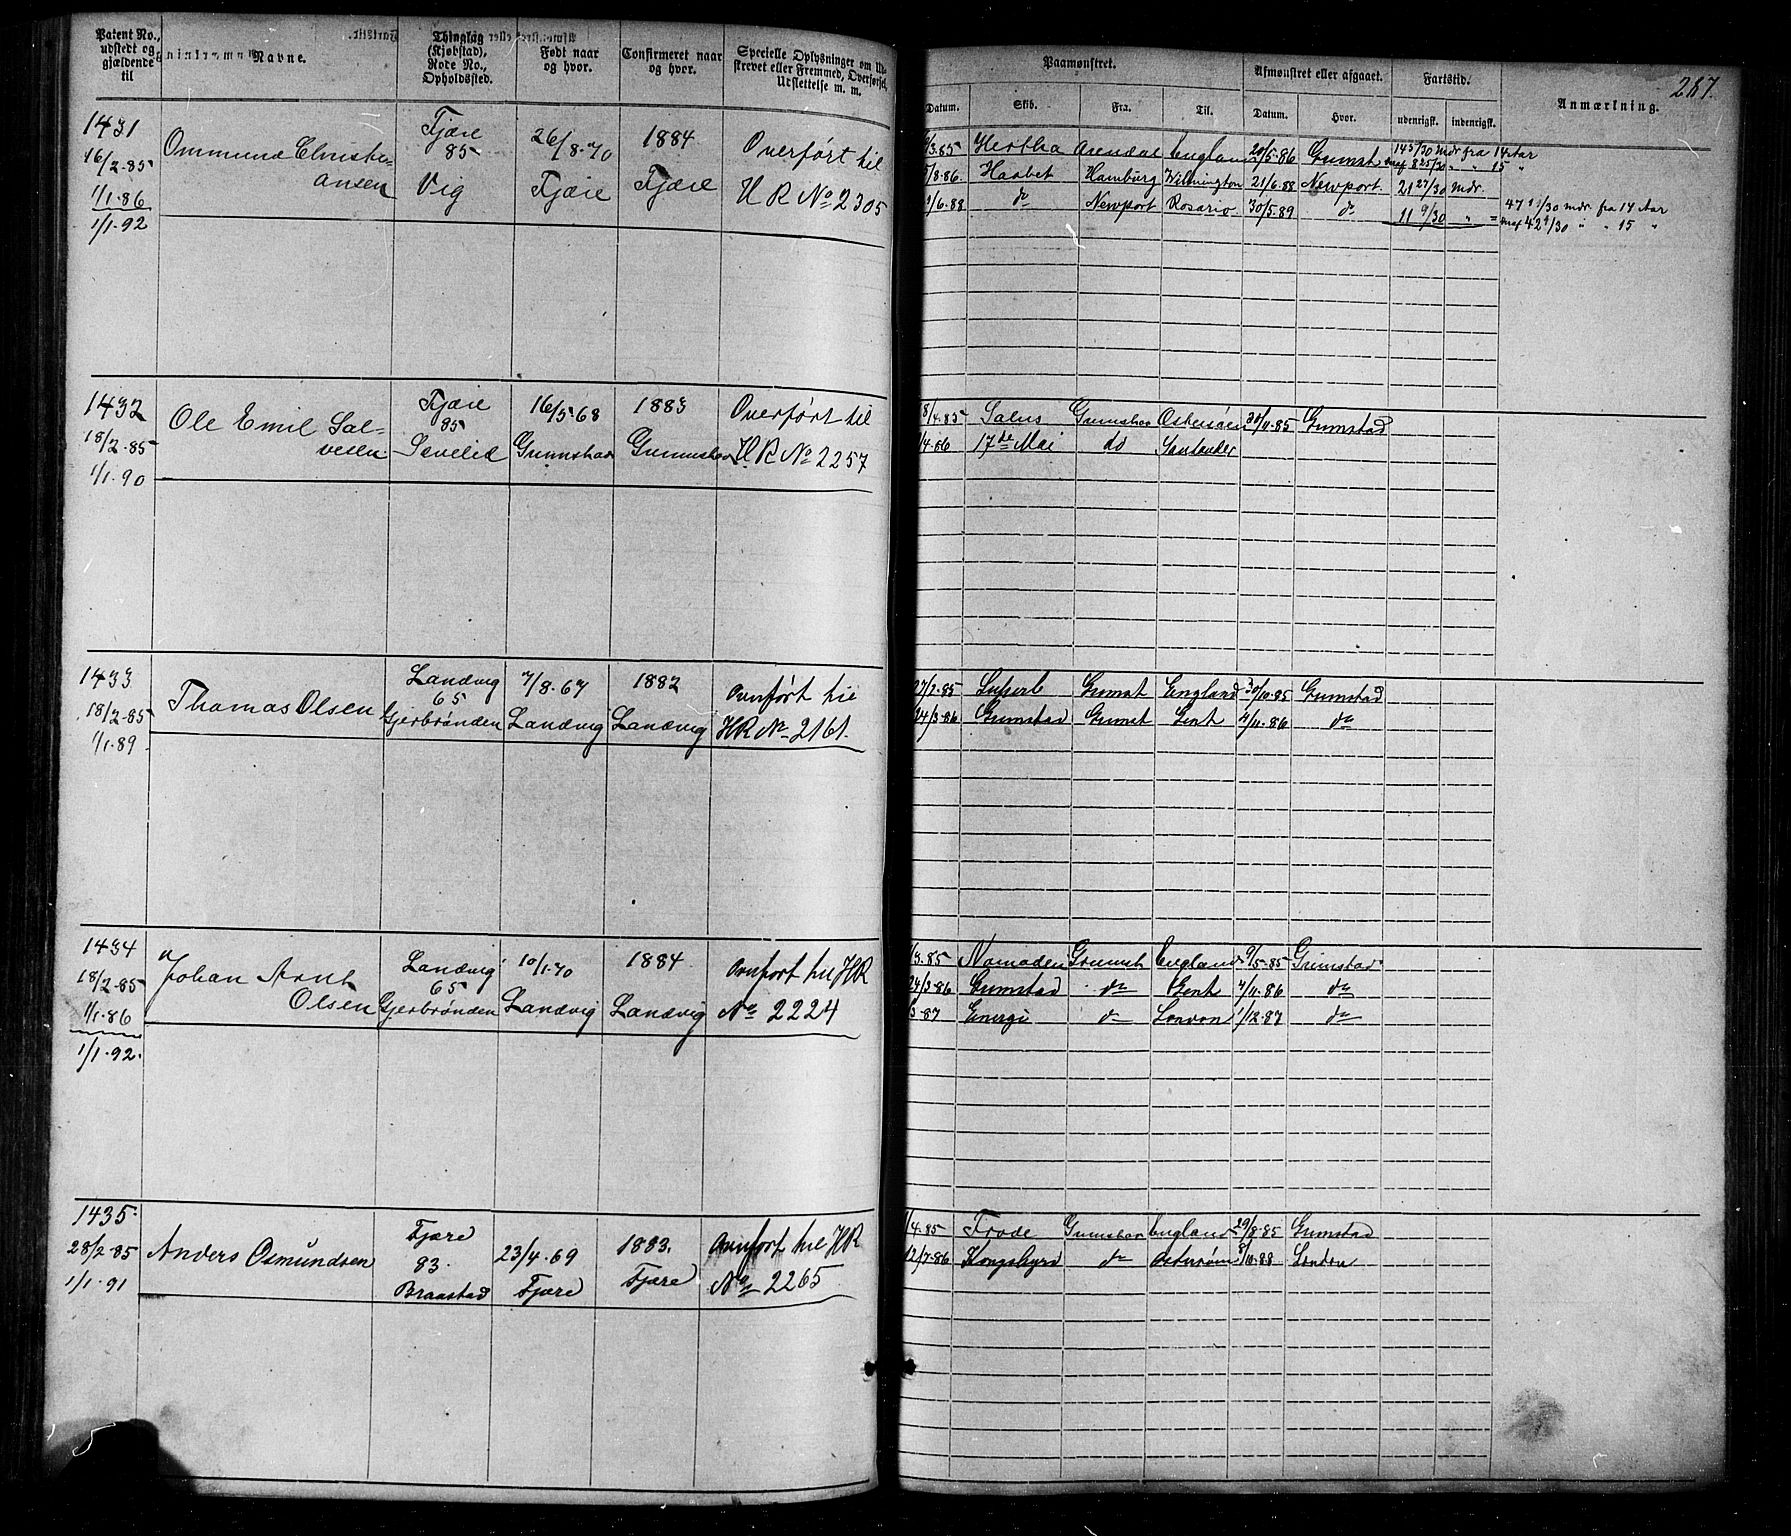 Patent No., udstedt og gjældende til
Navne.
Thinglag (Kjøbstad), Rode No., Opholdssted.
Født naar og hvor.
Confirmeret naar og hvor.
Specielle Oplysninger om Udskrevet eller Fremmed, Overførsel, Udslettelse m. m.
Paamønstret.
Afmønstret eller afgaaet.
Fartstid.
Anmærkning.
267.
Datum. Skib. Fra. Til. Datum. Hvor. udenrigsk. indenrigsk.
1431
16/2-85
1/1-86
1/1-92
Ommund Christi-
ansen
Fjære
85
Vig
26/8-70
Fjære
1884
Fjære
Overført til
HR No 2305
/3.85 Hertha Arendal England 20/5-86 Grimst 14 3/30 mdr fra 14 Aar
7/8.86. Haabet Hamburg Wilmington 21/6.88 Newport. 21 27/30 mdr.
/6.88 do Newport Rosario 30/5.89 do 11 9/30 " =
mdr. fra 14 Aar
42 9/30 " " 15 "
1432
18/2-85
1/1-90
Ole Emil Sal-
vesen
Fjære
85
16/5-68
Grimstad
1883
Grimstad
Overført til
HR No 2257
8/4.85 Salus Grimstad Østersøen 30/11-85 Grimstad
/4-86 17de Mai do Santander
1433
18/2-85
1/1-89
Thomas Olsen
Landvig
65
Gjerbrønden
7/8-67
Landvig
1882
Landvig
Overført til
HR No 2161.
27/2-85 Superb Grimst England 30/10-85 Grimstad
24/3-86 Grimstad Grimst Gent 4/11-86 do
1434
18/2-85
1/1-86
1/1-92.
Johan Arnt
Olsen
Landvig
65
Gjerbrønden
10/1-70
Landvig
1884
Landvig
Overført til HR
No 2224
/3.85 Nomaden Grimst England 9/5-85 Grimstad
24/3-86 Grimstad do Gent 4/11-86 do
/3-87 Energi do London 1/12-87 do
1435
28/2-85
1/1-91
Anders Osmundsen
Fjære
83.
Braastad
23/4-69
Fjære
1883.
Fjære
Overført til HR
No 2265
/4-85 Frode Grimstad England 29/8-85 Grimstad
12/7-86 do Østersøen 8/10-88 London